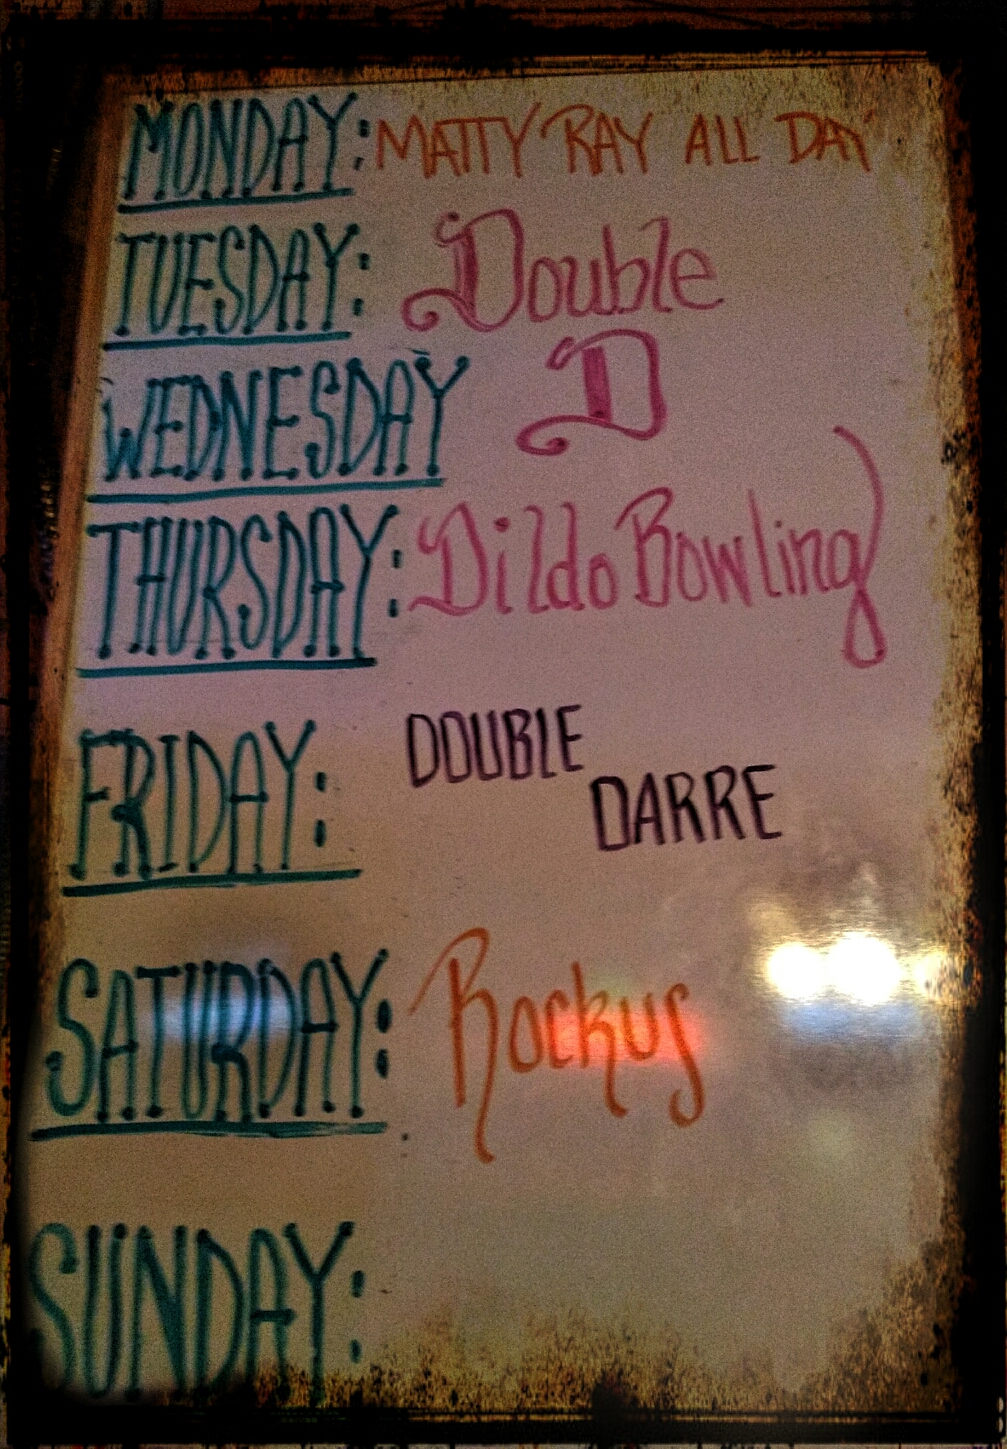 MONDAY: MATTY RAY ALL DAY
TUESDAY: Double
WEDNESDAY D
THURSDAY: Dildo Bowling
FRIDAY: DOUBLE
DARRE
SATURDAY: Rockus
SUNDAY: